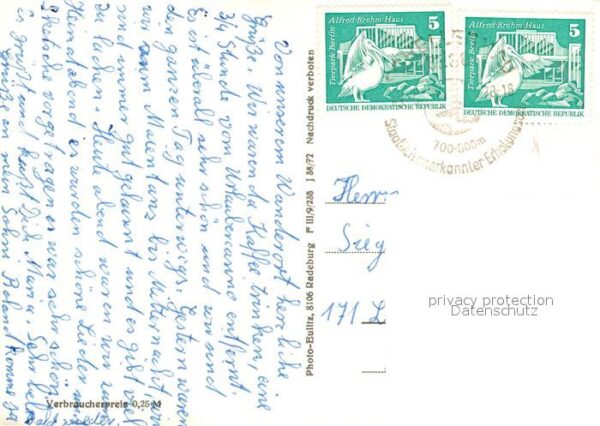 Von unserem Wanderort herrliche
Grüße. Wir waren da Kaffee trinken, eine
3/4 Stunde vom Urlaubercasino entfernt.
Es ist überall sehr schön und wir sind
den ganzen Tag unterwegs. Gestern waren
wir zum Maientanz bis Mitternacht, wir
sind immer gut gelaunt und es gibt viel
zu lachen. Heute abend waren wir im
Heimatabend es wurden schöne Lieder
vorgetragen es war sehr schön.
grüßt und küßt Dich Maria. Sehr viele
Grüße an mein Sohni Roland komme ja
bald wieder.
Verbraucherpreis 0,25 M
Photo-Eulitz, 8106 Radeburg P III/9/235 J 38/72 Nachdruck verboten
Tierpark Berlin
Alfred-Brehm-Haus
5
DEUTSCHE DEMOKRATISCHE REPUBLIK
Tierpark Berlin
Alfred-Brehm-Haus
5
DEUTSCHE DEMOKRATISCHE REPUBLIK
700-800m
Staatlich anerkannter Erholungsort
Herrn
Sieg
171 L
privacy protection
Datenschutz